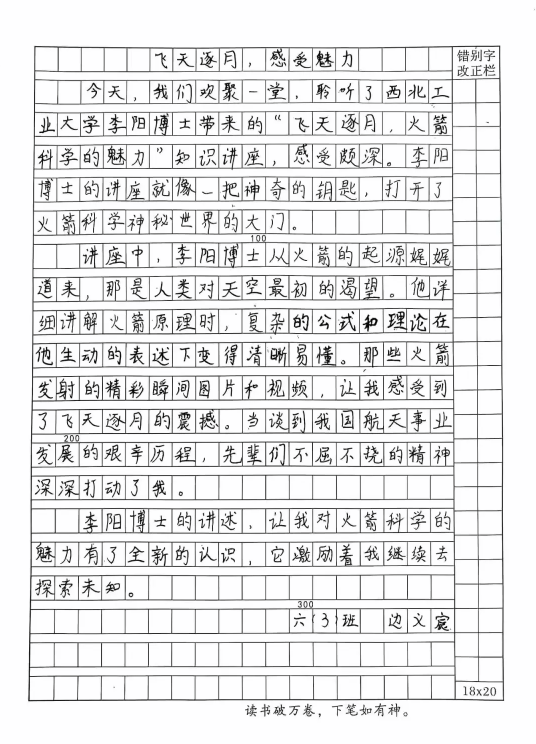 飞天逐月，感受魅力
错别字
改正栏
今天，我们欢聚一堂，聆听了西北工
业大学李阳博士带来的“飞天逐月，火箭
科学的魅力”知识讲座，感受颇深。李阳
博士的讲座就像一把神奇的钥匙，打开了
火箭科学神秘世界的大门。
100
讲座中，李阳博士从火箭的起源娓娓
道来，那是人类对天空最初的渴望。他详
细讲解火箭原理时，复杂的公式和理论在
他生动的表述下变得清晰易懂。那些火箭
发射的精彩瞬间图片和视频，让我感受到
了飞天逐月的震撼。当谈到我国航天事业
200
发展的艰辛历程，先辈们不屈不挠的精神
深深打动了我。
李阳博士的讲述，让我对火箭科学的
魅力有了全新的认识，它激励着我继续去
探索未知。
300
六(3)班 边文宸
18x20
读书破万卷，下笔如有神。